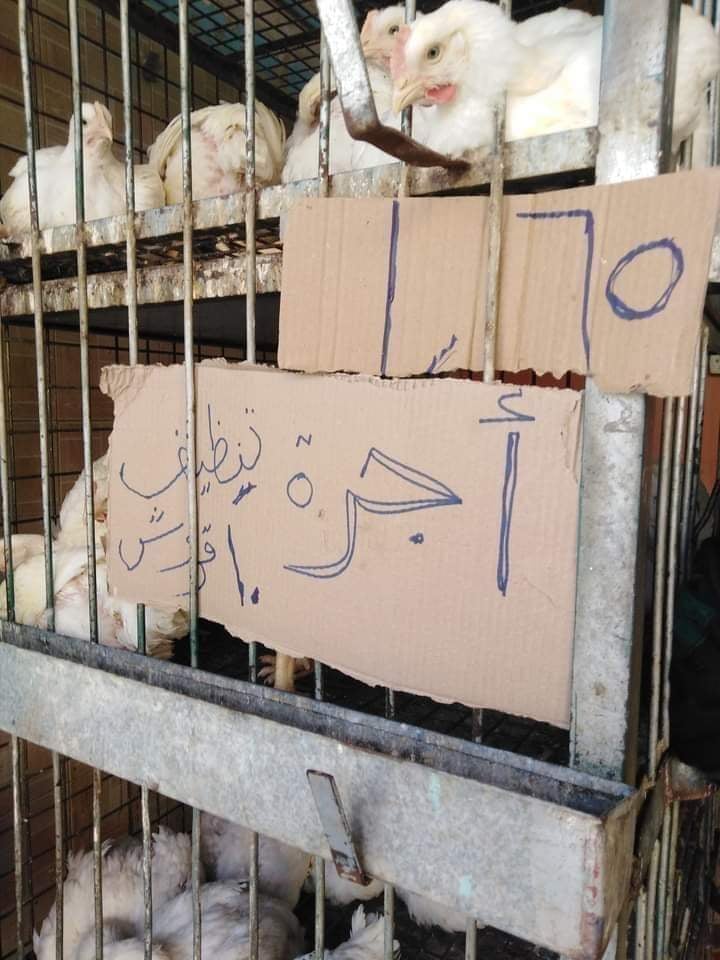 ١,٦٥
أجرة
تنظيف
١٠ قروش